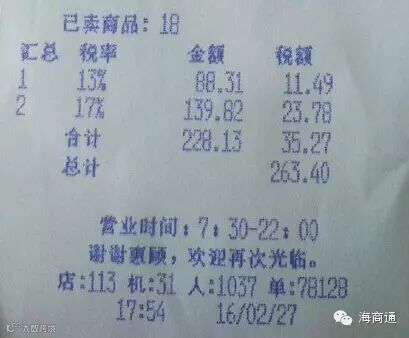 已卖商品: 18
汇总 税率 金额 税额
1 13% 88.31 11.49
2 17% 139.82 23.78
合计 228.13 35.27
总计 263.40
营业时间: 7: 30-22: 00
谢谢惠顾, 欢迎再次光临。
店:113 机:31 人:1037 单:78128
17:54 16/02/27
海商通